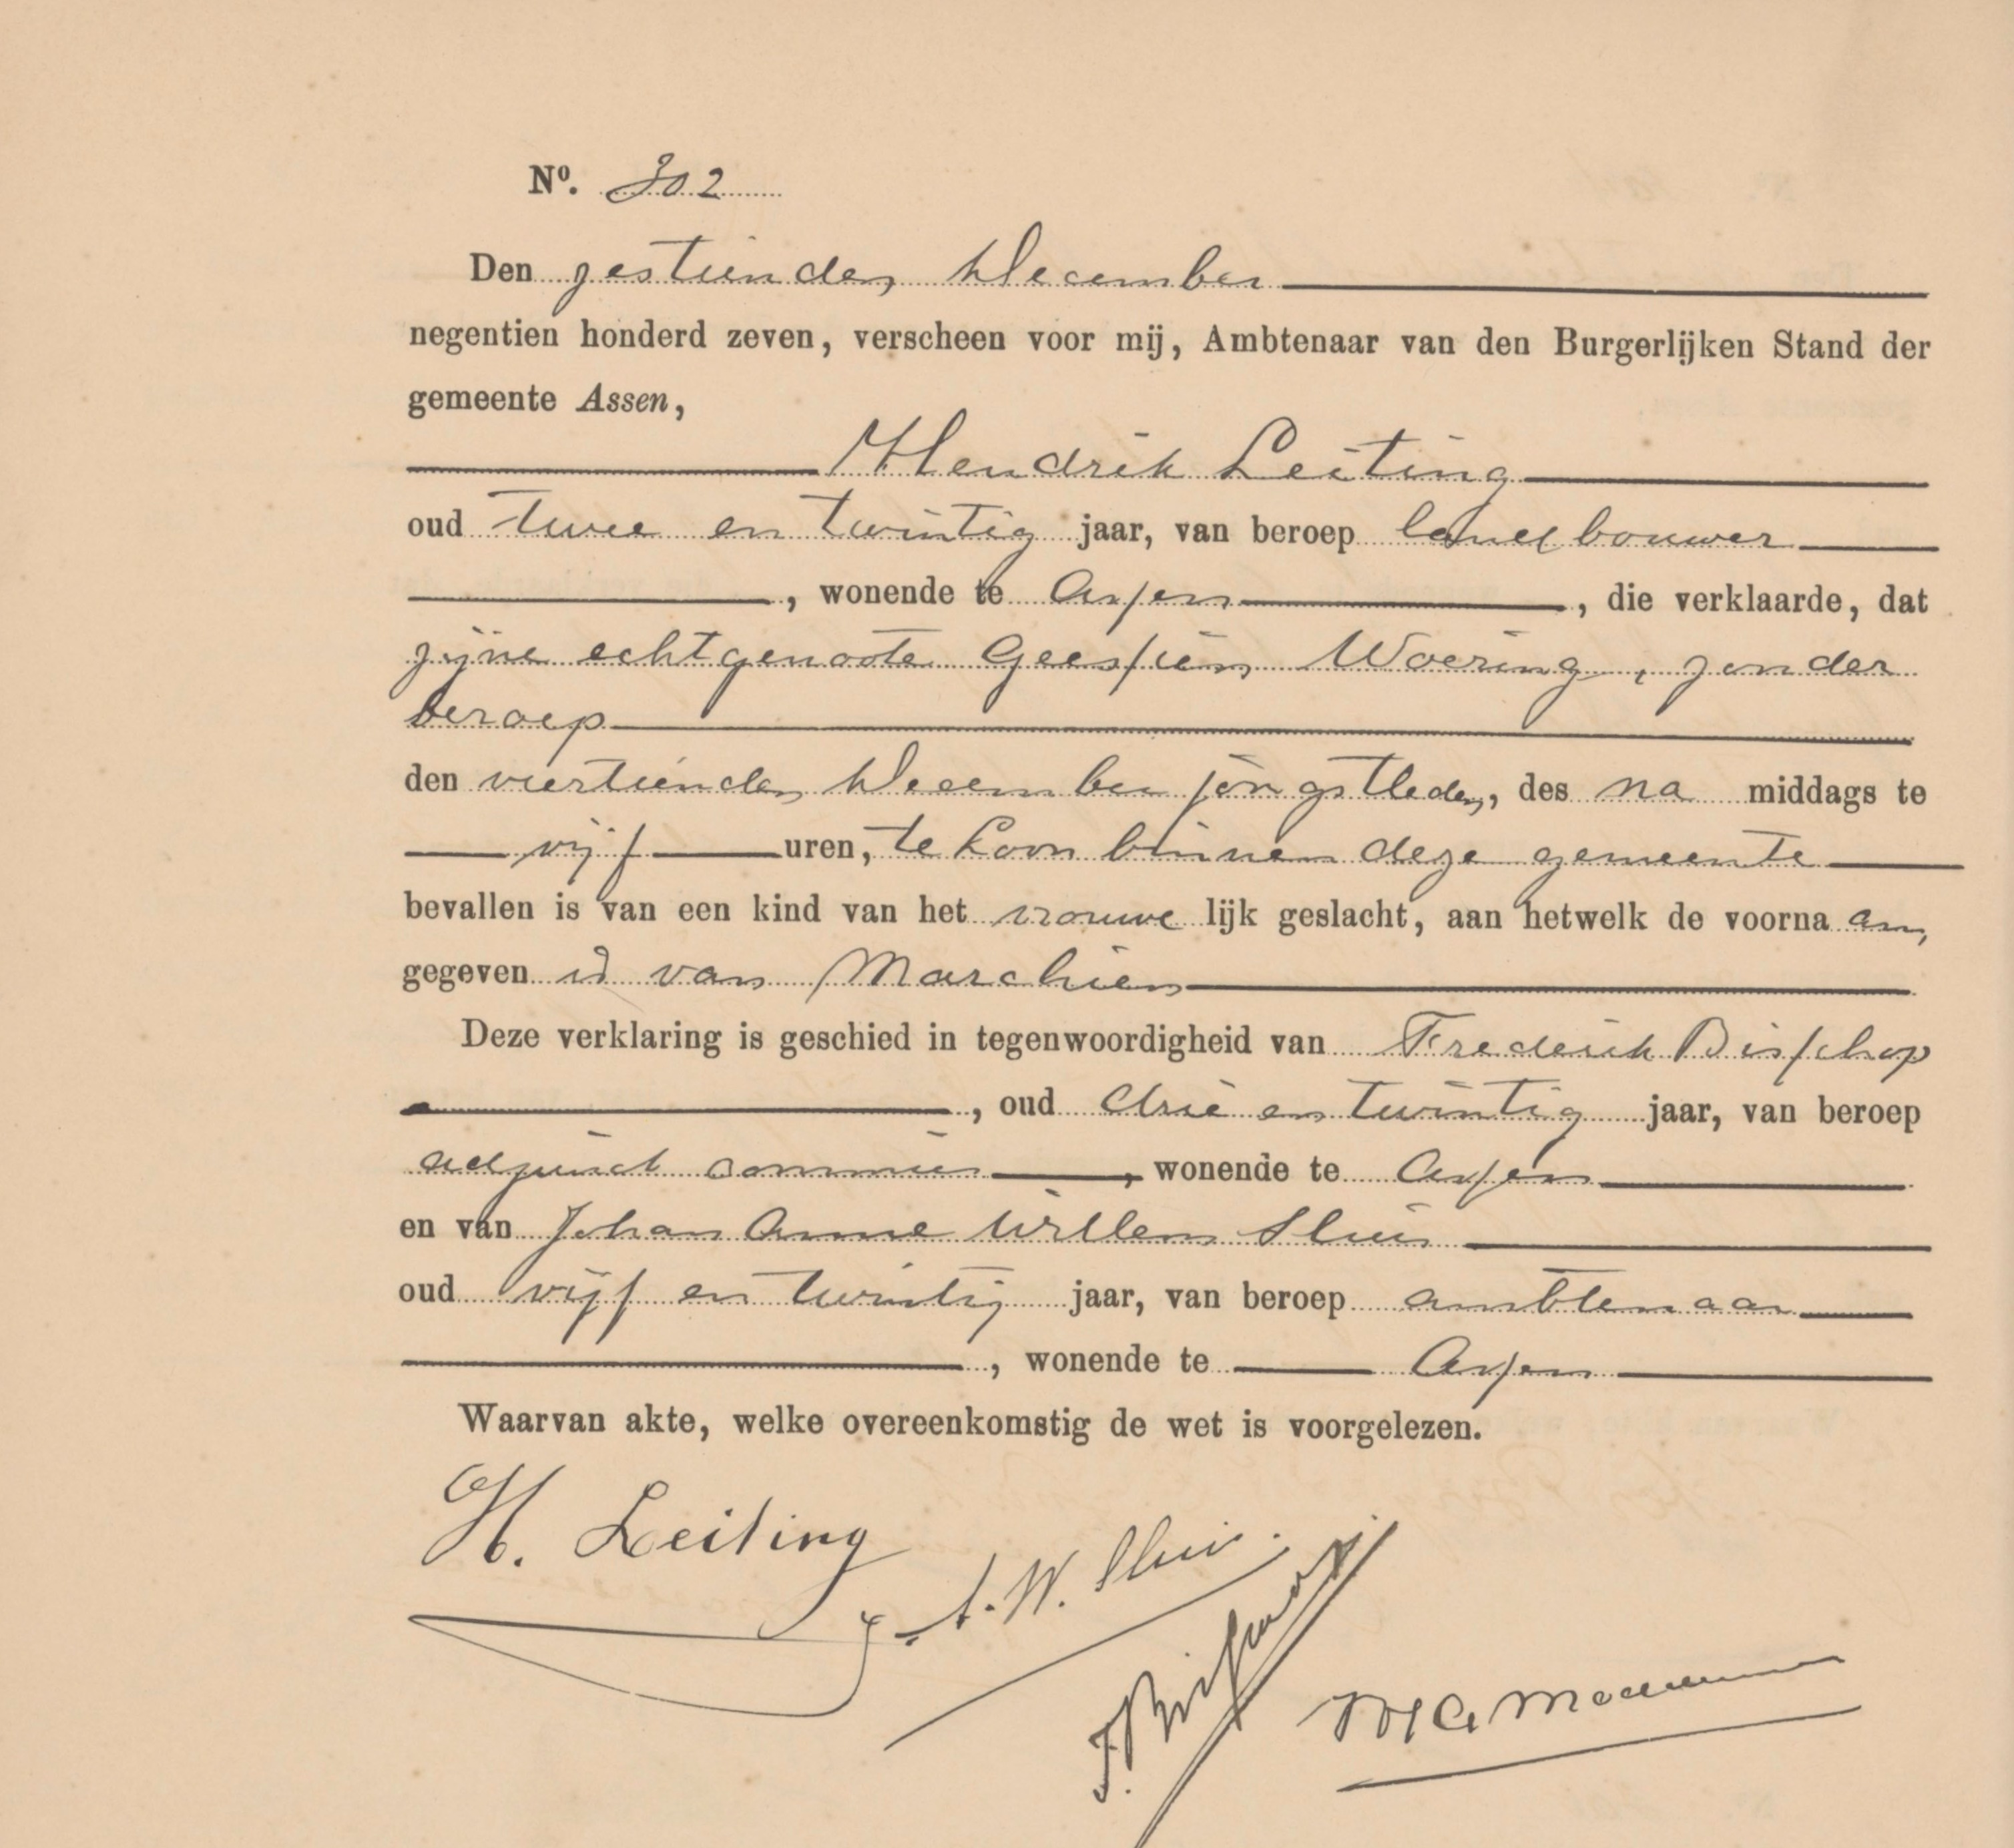 Nº. 302
Den zestienden December
negentien honderd zeven, verscheen voor mij, Ambtenaar van den Burgerlijken Stand der
gemeente Assen,
Hendrik Leiting
oud twee en twintig jaar, van beroep landbouwer
, wonende te Assen, die verklaarde, dat
zijne echtgenoote Geessien Woering, zonder
beroep
den viertienden December jongstleden, des na middags te
vijf uren, te Loon binnen deze gemeente
bevallen is van een kind van het vrouwe lijk geslacht, aan hetwelk de voorna am
gegeven is van Marchien
Deze verklaring is geschied in tegenwoordigheid van Frederik Bisschop
, oud drie en twintig jaar, van beroep
adjunct commies, wonende te Assen
en van Johan Anne Willem Sluis
oud vijf en twintig jaar, van beroep ambtenaar
, wonende te Assen
Waarvan akte, welke overeenkomstig de wet is voorgelezen.
H. Leiting
J. A. W. Sluis.
F. Bisschop